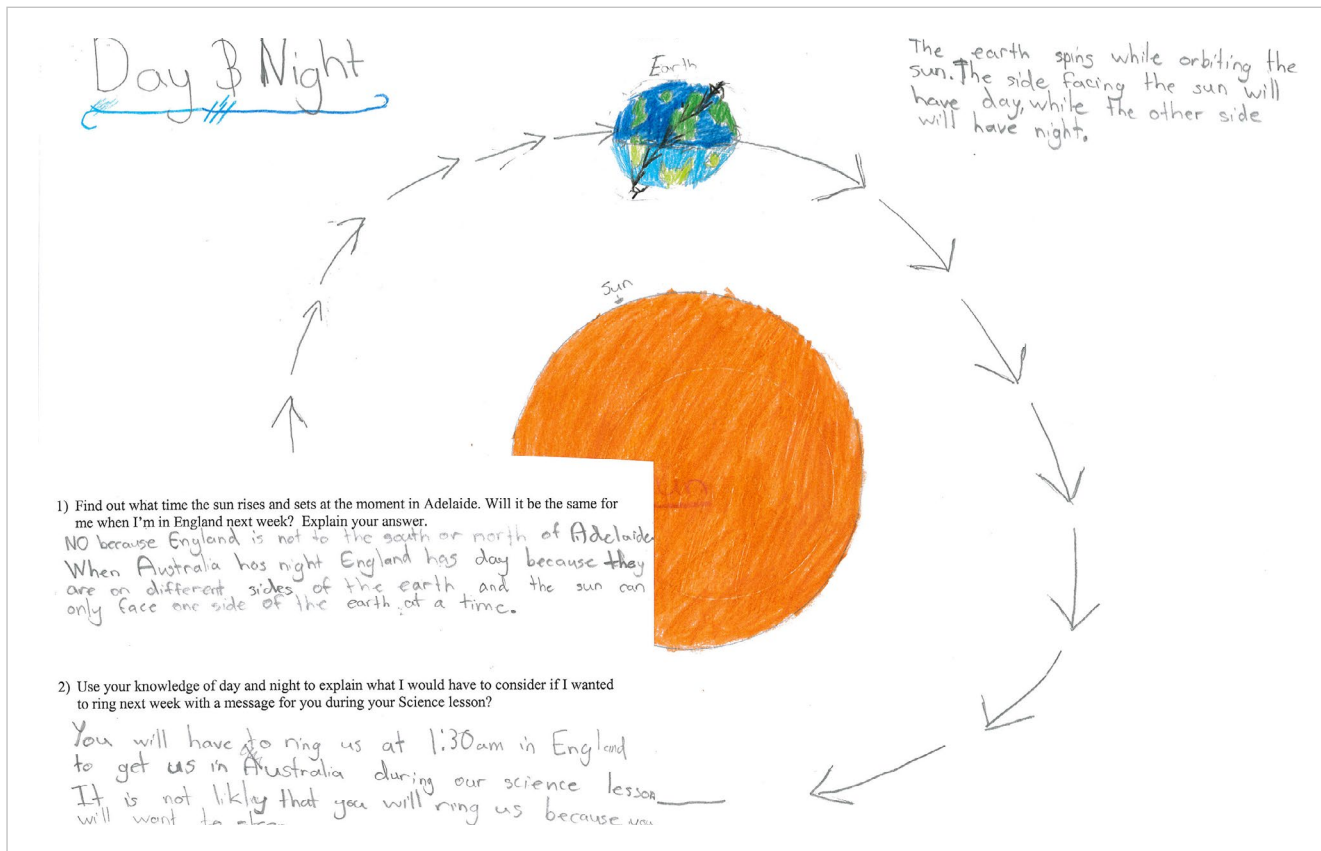 Day & Night
Earth
The earth spins while orbiting the
sun. The side facing the sun will
have day, while the other side
will have night.
Sun
1) Find out what time the sun rises and sets at the moment in Adelaide. Will it be the same for
me when I'm in England next week? Explain your answer.
NO because England is not to the south or north of Adelaide
When Australia has night England has day because they
are on different sides of the earth and the sun can
only face one side of the earth at a time.
2) Use your knowledge of day and night to explain what I would have to consider if I wanted
to ring next week with a message for you during your Science lesson?
You will have to ring us at 1:30am in England
to get us in Australia during our science lesson
It is not likly that you will ring us because you
will want to